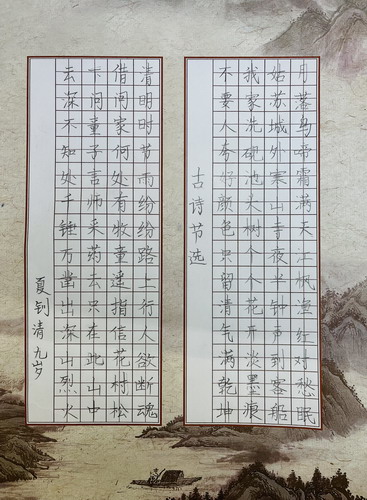 月落乌啼霜满天江枫渔红对愁眠
姑苏城外寒山寺夜半钟声到客船
我家洗砚池头树个个花开淡墨痕
不要人夸好颜色只留清气满乾坤
古诗节选
清明时节雨纷纷路上行人欲断魂
借问家何处有牧童遥指信花村松
下问童子言师采药去只在此山中
云深不知处千锤万凿出深山烈火
夏钊清九岁